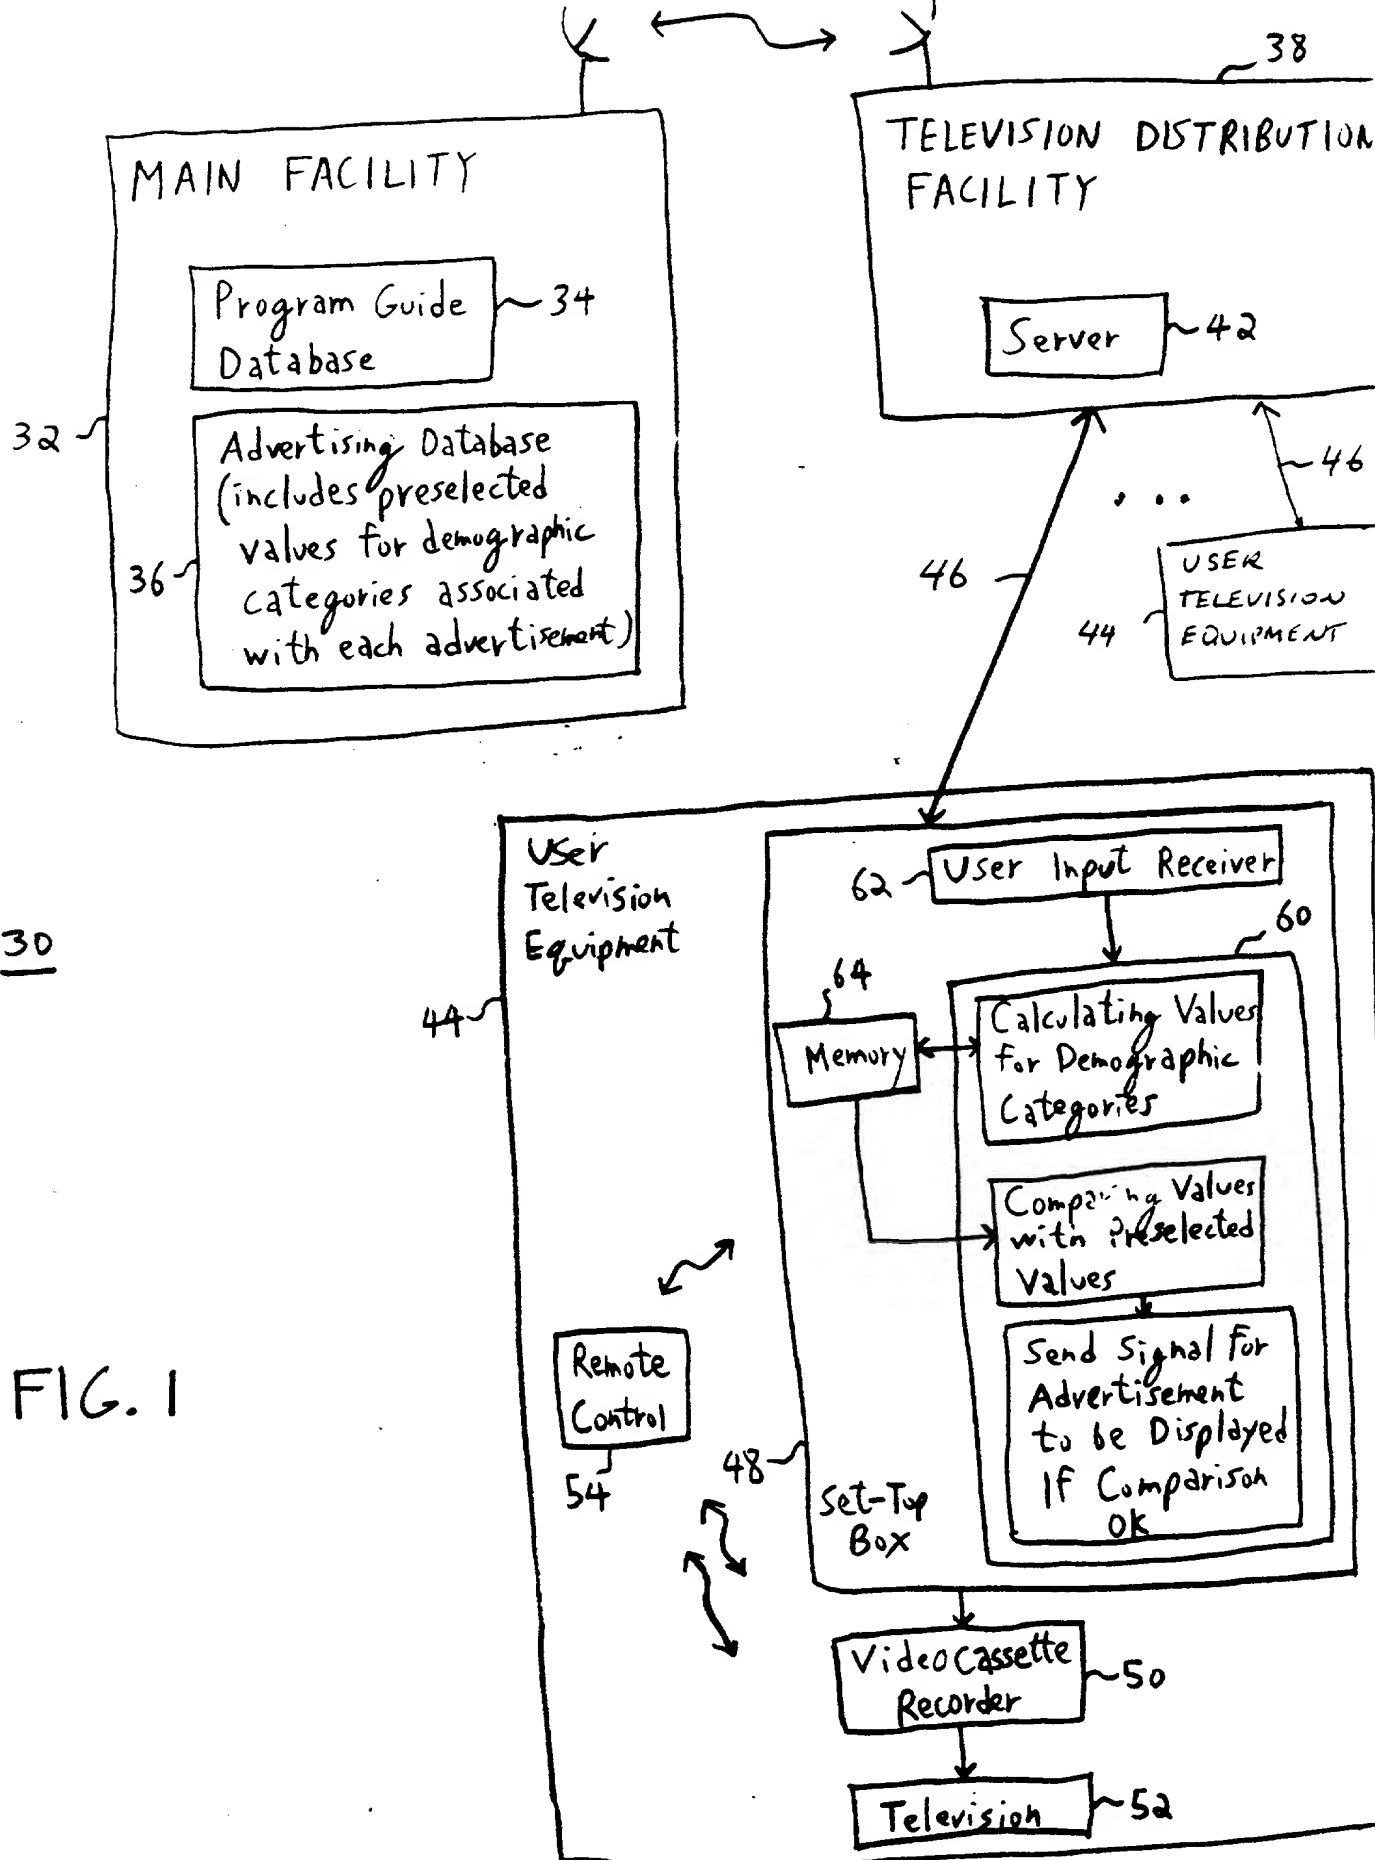 38
TELEVISION DISTRIBUTION
FACILITY
MAIN FACILITY
Program Guide
Database
34
Server
42
32
Advertising Database
(includes preselected
values for demographic
categories associated
with each advertisement)
36
46
46
USER
TELEVISION
EQUIPMENT
44
User
Television
Equipment
62
User Input Receiver
60
30
64
44
Memory
Calculating Values
for Demographic
Categories
Comparing Values
with Preselected
Values
Remote
Control
54
Send Signal for
Advertisement
to be Displayed
If Comparison
OK
FIG. 1
48
Set-Top
Box
Video Cassette
Recorder
50
Television
52